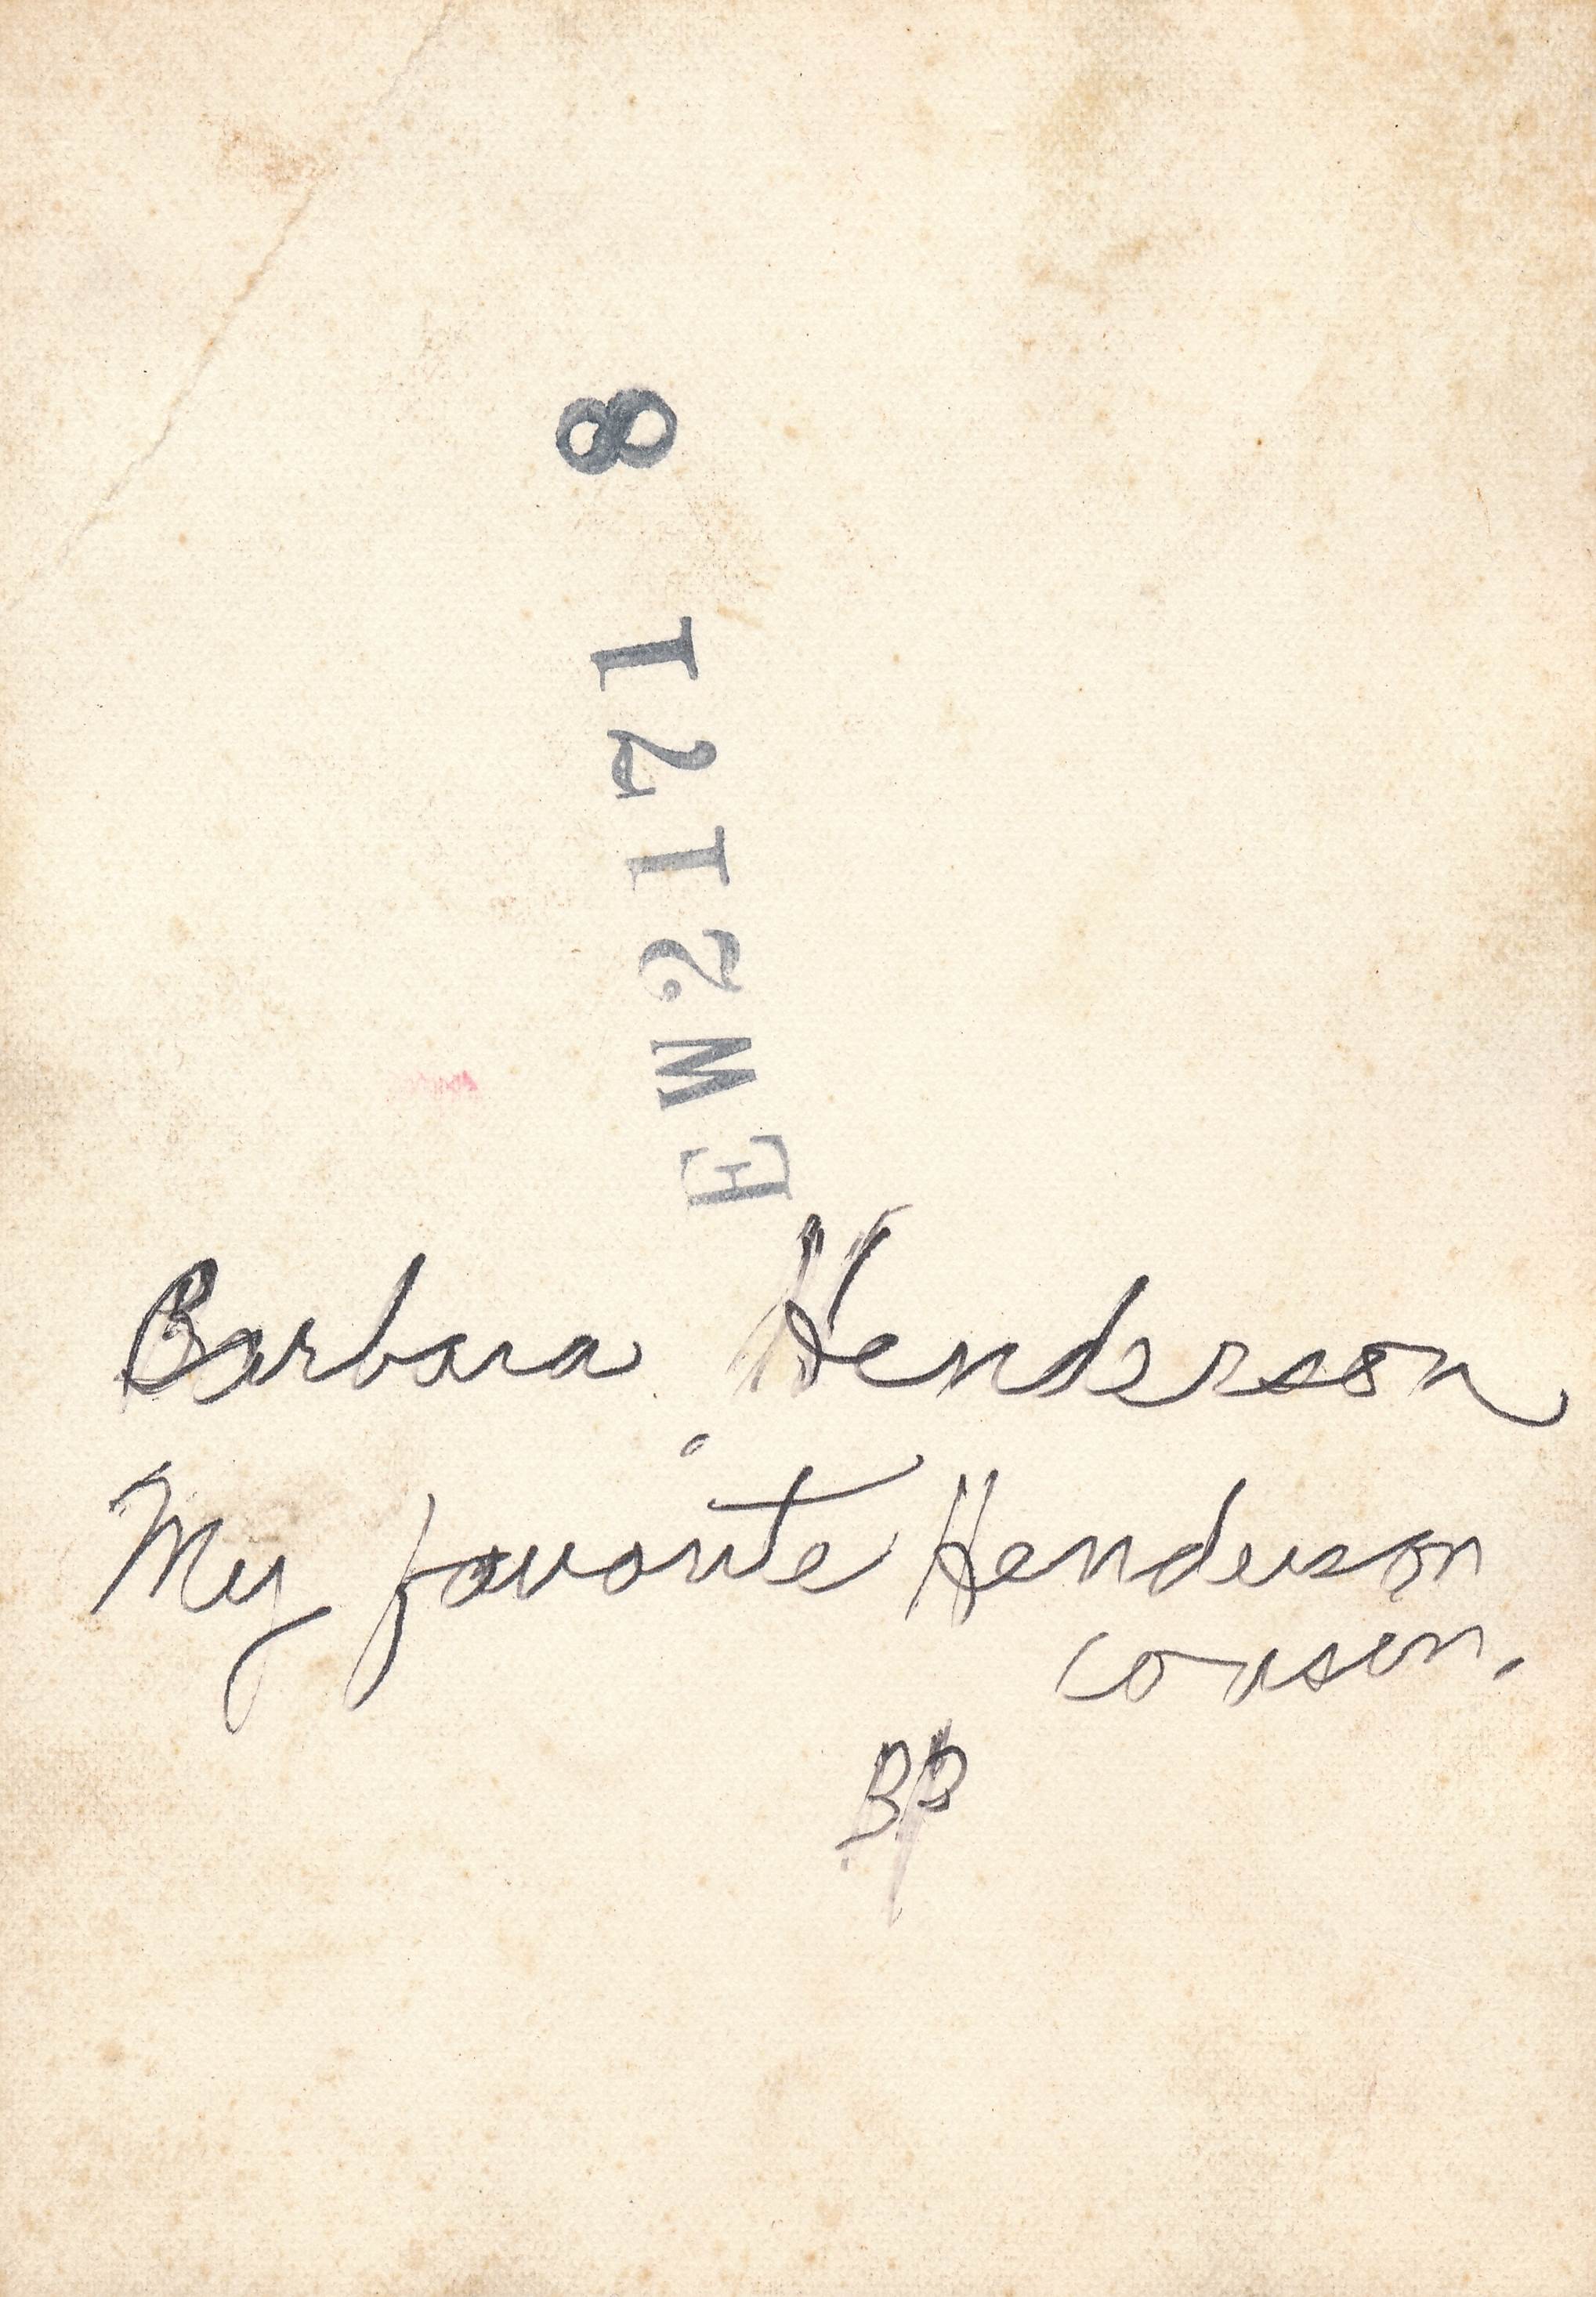 Barbara Henderson
My favorite Henderson
cousen.
BP